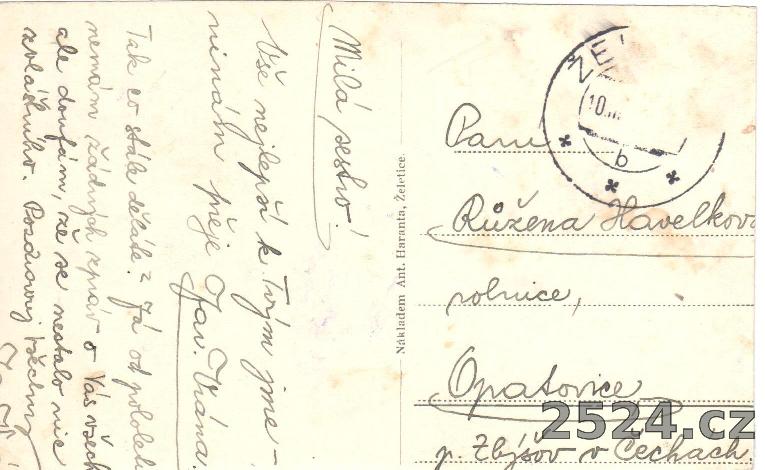 Milá sestro!
Vše nejlepší k Tvým jme-
ninám přeje Jar. Vrána.
Tak co stále děláte? Já od pololetí
nemám žádných zpráv o Vás všech
ale doufám, že se nestalo nic
zvláštního. Pozdravuj všechny
Nákladem Ant. Haranta, Želetice.
ŽE
10.III
b
Paní
Růžena Havelková
rolnice,
Opatovice
p. Zbýšov v Čechách.
2524.cz